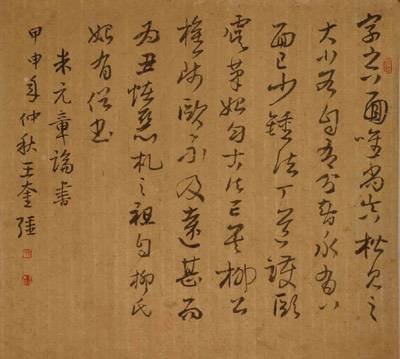 字之八面唯尚真楷見之
大小各自有分智永有八
面已少鍾法丁道護歐
虞筆始勻古法亡矣柳公
權師歐不及遠甚而
為丑怪惡札之祖自柳氏
始有俗書
米元章論書
甲申年仲秋王奎